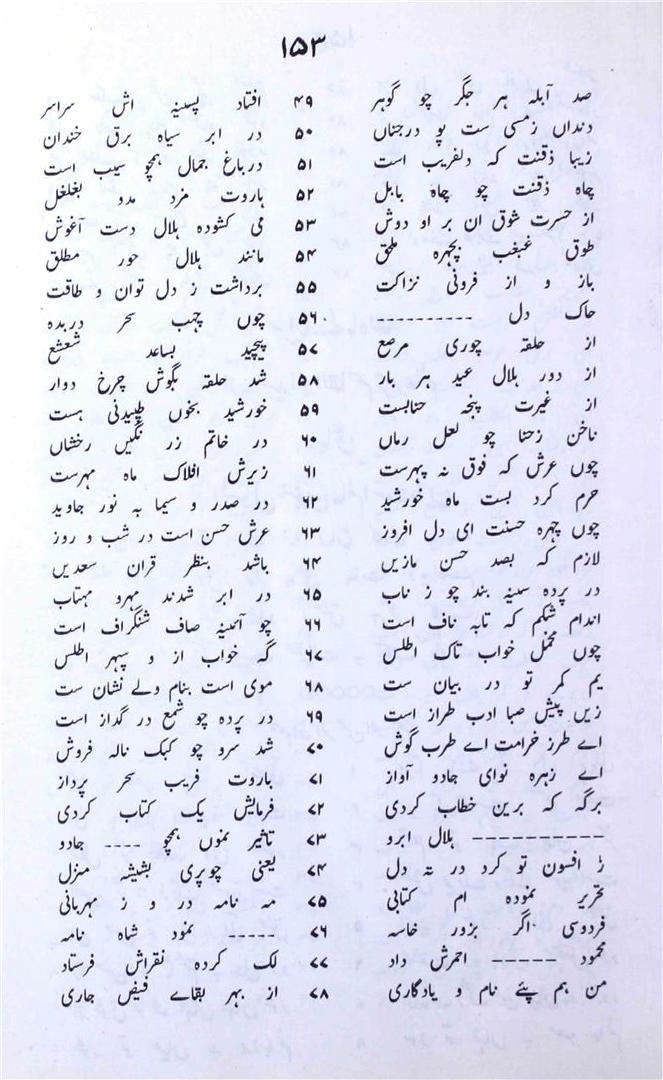 ۱۵۳
صد آبلہ ہر جگر چو گوہر ۴۹ افتاد بسینہ اش سراسر
دنداں زمسی ست پو درجناں ۵۰ در ابر سیاہ برق خنداں
زیبا ذقنت کہ دلفریب است ۵۱ درباغ جمال ہمچو سیب است
چاہ ذقنت چو چاہ بابل ۵۲ ہاروت مزد مدو بغلغل
از حسرت شوق ان بر او دوش ۵۳ می کشودہ ہلال دست آغوش
طوق غبغب بچہرہ ملحق ۵۴ مانند ہلال حور مطلق
باز و از فرونی نزاکت ۵۵ برداشت ز دل توان و طاقت
حاک دل ---------- ۵۶ چوں جہب سحر دریدہ
از حلقہ چوری مرصع ۵۷ پیچید بساعد شعشع
از دور ہلال عید ہر بار ۵۸ شد حلقہ بگوش چرخ دوار
از غیرت پنجہ حنابست ۵۹ خورشید بخوں طپیدنی ہست
ناخن زحنا چو لعل رماں ۶۰ در خاتم زر نگیں رخشاں
چوں عرش کہ فوق نہ پہرست ۶۱ زیرش افلاک ماہ مہرست
حرم کرد بست ماہ خورشید ۶۲ در صدر و سیما بہ نور جاوید
چوں چہرہ حسنت ای دل افروز ۶۳ عرش حسن است در شب و روز
لازم کہ بصد حسن مازیں ۶۴ باشد بنظر قران سعدیں
در پردہ سینہ بند چو ز ناب ۶۵ در ابر شدند مہرو مہتاب
اندام شکم کہ تابہ ناف است ۶۶ چو آئینہ صاف شنگراف است
چوں مخمل خواب تاک اطلس ۶۷ گہ خواب از و پہر اطلس
یم کمر تو در بیان ست ۶۸ موی است بنام ولے نشان ست
زیں پیش صبا ادب طراز است ۶۹ در پردہ چو شمع در گداز است
اے طرز خرامت اے طرب گوش ۷۰ شد سرو چو کبک نالہ فروش
اے زہرہ نوای جادو آواز ۷۱ باروت فریب سحر پرداز
برگہ کہ برین خطاب کردی ۷۲ فرمایش یک کتاب کردی
-------------- ہلال ابرو ۷۳ تاثیر نموں ہمچو ---- جادو
ز افسون تو کرد در نہ دل ۷۴ یعنی چوپری بشیشہ منزل
تحریر نمودہ ام کتابی ۷۵ مہ نامہ در و ز مہربانی
فردوسی اگر بزور خاسہ ۷۶ ----- نمود شاہ نامہ
محمود ------ احمرش داد ۷۷ لک کردہ نقراش فرستاد
من ہم پئے نام و یادگاری ۷۸ از بہر بقاے فیض جاری